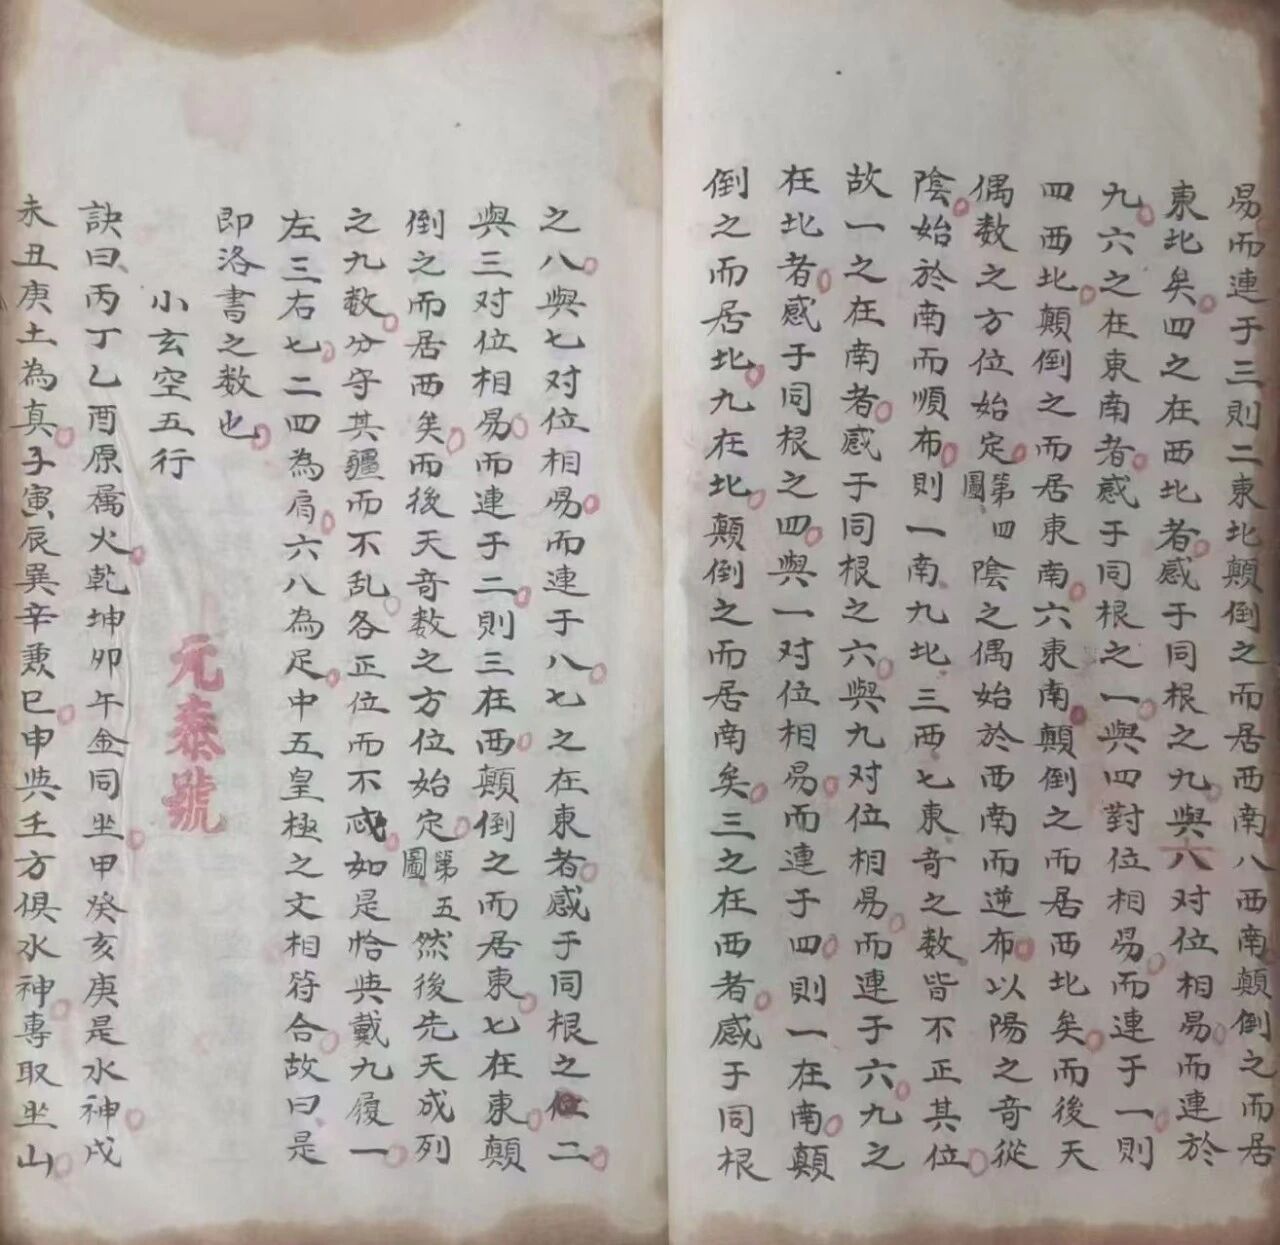 易而連于三則二東北顛倒之而居西南八西南顛倒之而居
東北矣四之在西北者感于同根之九與八对位相易而連於
九六之在東南者感于同根之一與四對位相易而連于一則
四西北顛倒之而居東南六東南顛倒之而居西北矣而後天
偶数之方位始定第四圖陰之偶始於西南而逆布以陽之奇從
陰始於南而順布則一南九北三西七東奇之数皆不正其位
故一之在南者感于同根之六與九对位相易而連于六九之
在北者感于同根之四與一对位相易而連于四則一在南顛
倒之而居北九在北顛倒之而居南矣三之在西者感于同根
之八與七对位相易而連于八七之在東者感于同根之二
與三对位相易而連于二則三在西顛倒之而居東七在東顛
倒之而居西矣而後天奇数之方位始定第五圖然後先天成列
之九数分守其疆而不乱各正位而不忒如是恰與戴九履一
左三右七二四為肩六八為足中五皇極之文相符合故曰是
即洛書之数也
小玄空五行
元泰號
訣曰丙丁乙酉原属火乾坤卯午金同坐甲癸亥庚是水神戌
未丑庚土為真子寅辰巽辛兼巳申與壬方俱水神專取坐山